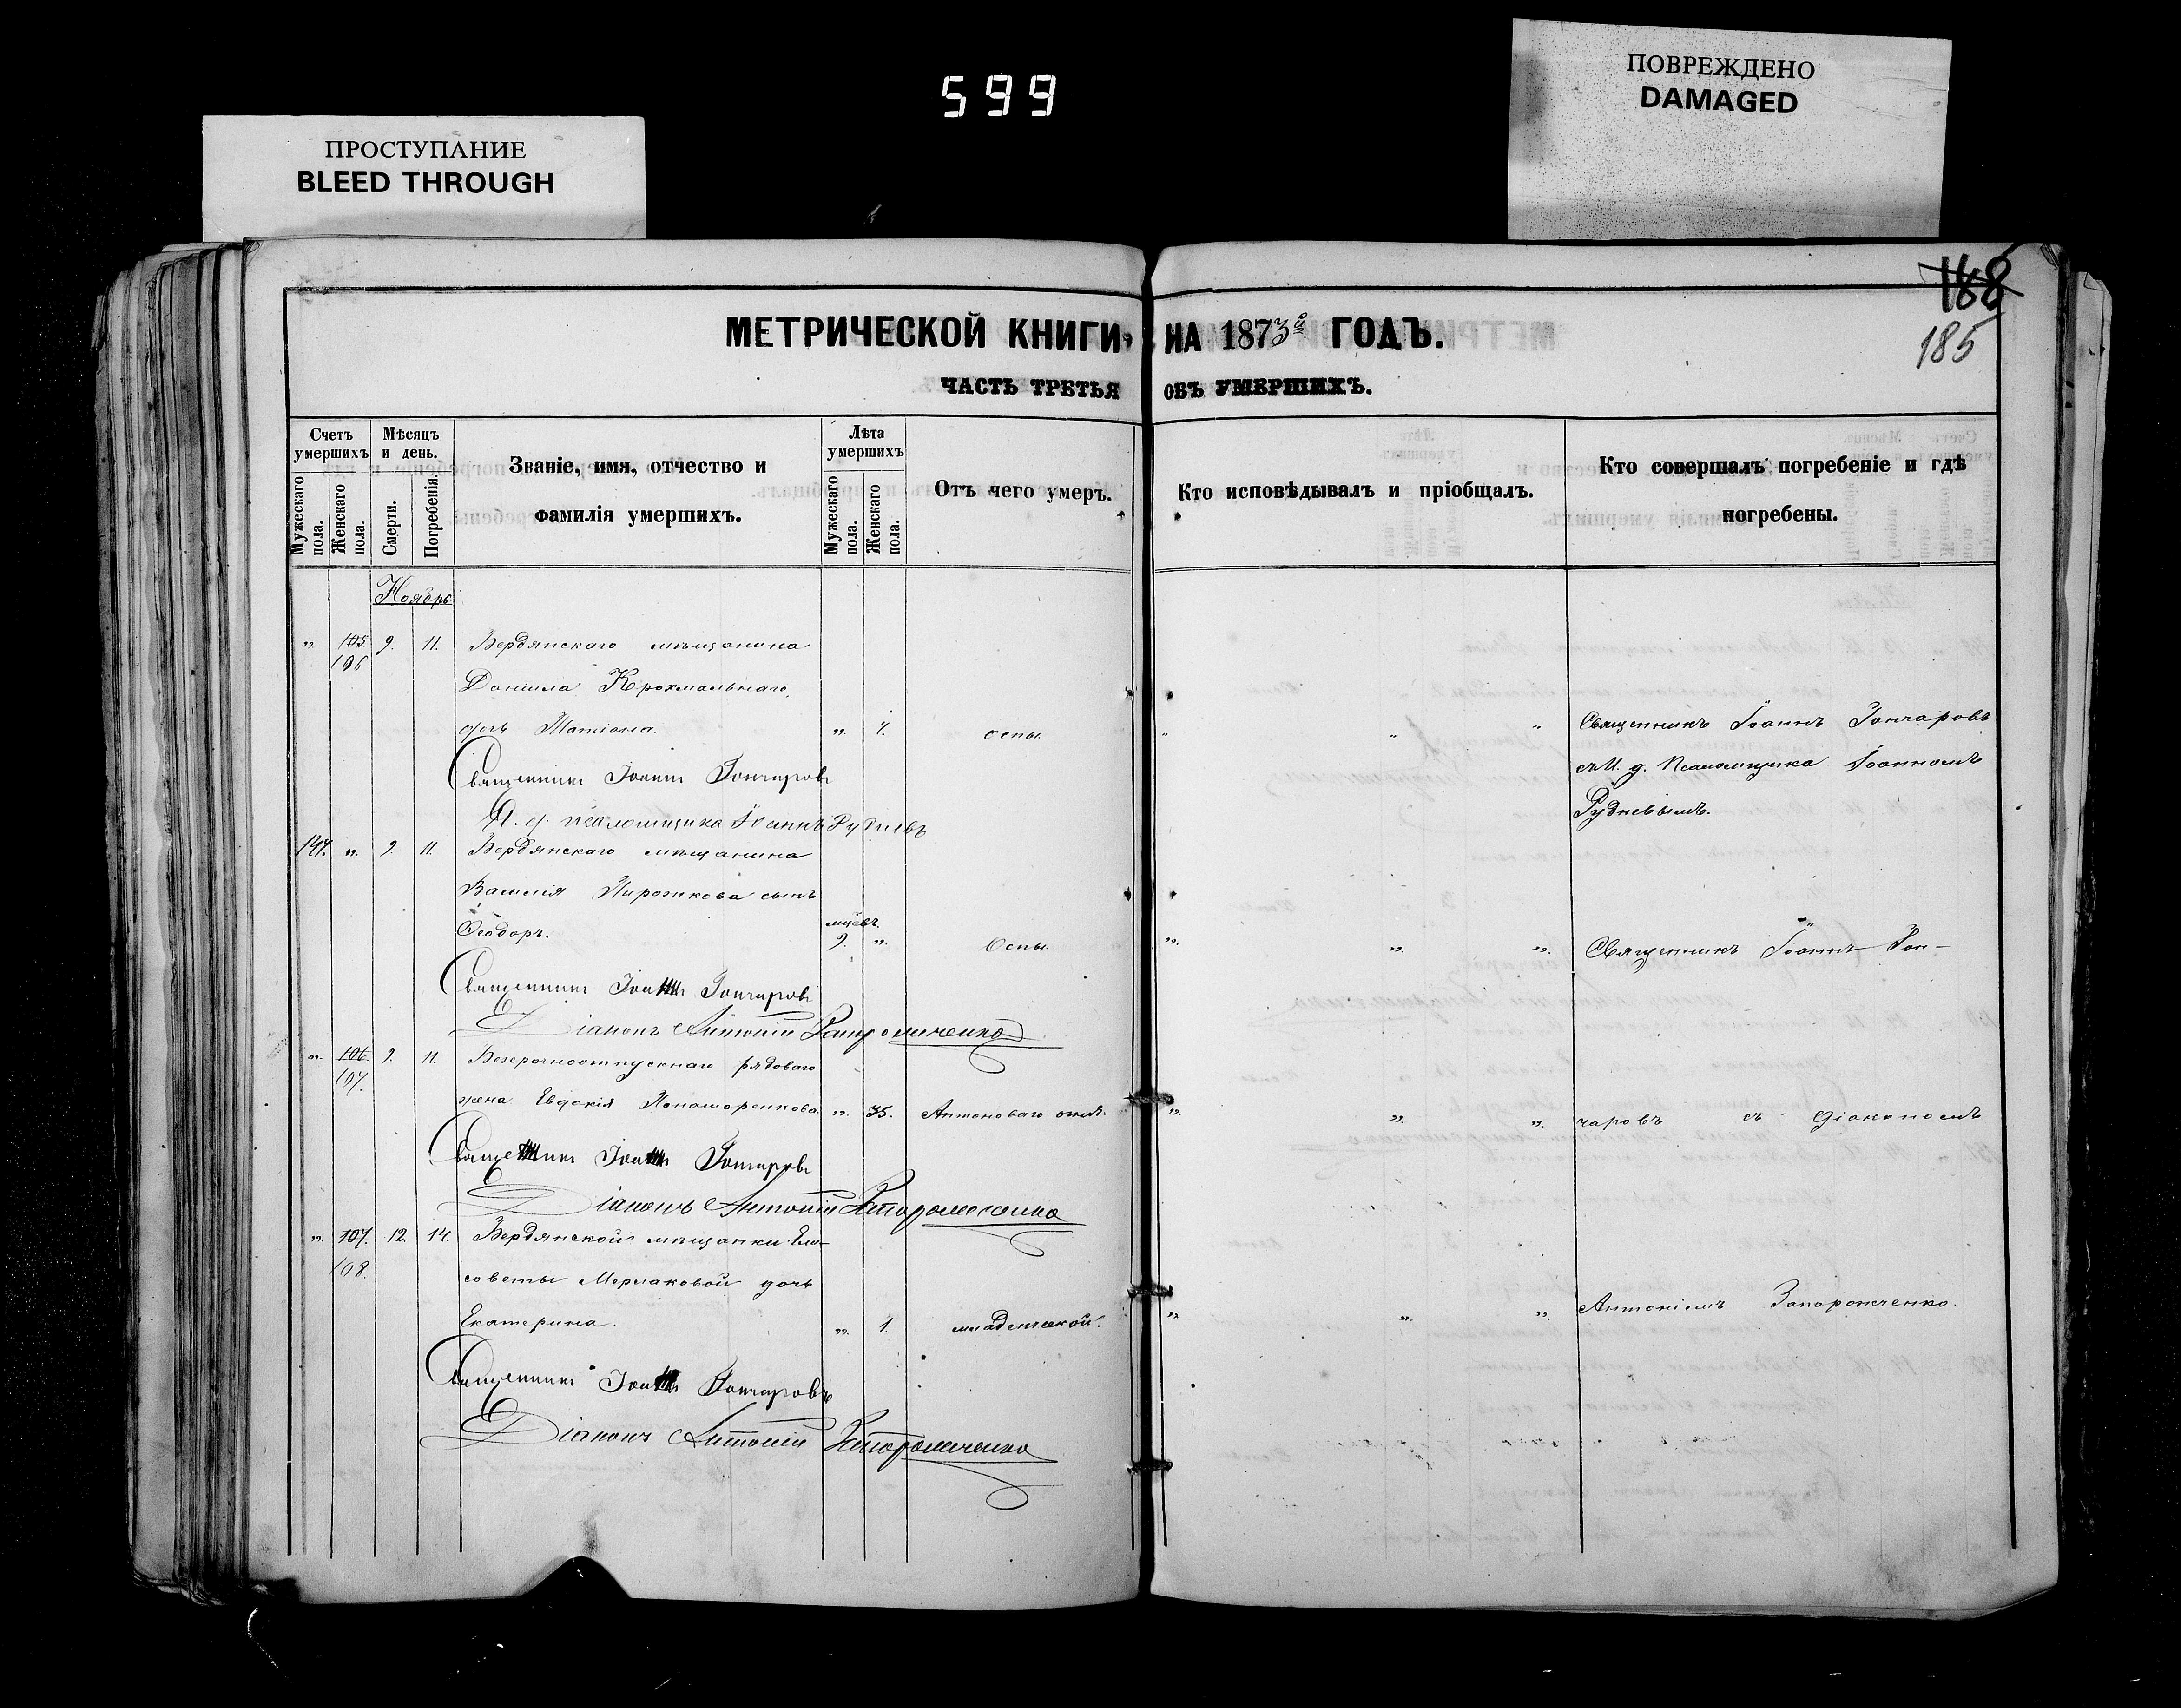 599
ПРОСТУПАНИЕ
BLEED THROUGH
ПОВРЕЖДЕНО
DAMAGED
188
185
МЕТРИЧЕСКОЙ КНИГИ, НА 1873й ГОДЪ.
ЧАСТЬ ТРЕТЬЯ ОБЪ УМЕРШИХЪ.
Счетъ умершихъ
Мужескаго пола.
Женскаго пола.
Мѣсяцъ и день.
Смерти.
Погребенія.
Званіе, имя, отчество и
фамилія умершихъ.
Лѣта умершихъ
Мужескаго пола.
Женскаго пола.
Отъ чего умеръ.
Кто исповѣдывалъ и пріобщалъ.
Кто совершалъ погребеніе и гдѣ
погребены.
Ноябрь
„ 105. 9. 11. Бердянскаго мѣщанина
106
Даніила Крохмальнаго
дочь Татіана. „ оспы „ „ „ Священникъ Іоаннъ Гончаровъ
Священникъ Іоаннъ Гончаровъ
съ И. д. Псаломщика Іоанномъ
И. д. псаломщика Іоаннъ Рудневъ
Рудневымъ.
147. „ 9. 11. Бердянскаго мѣщанина
Василія Пирожкова сынъ
Ѳеодоръ. мцевъ.
9. „ Оспы „ „ „ Священникъ Іоаннъ Гон-
Священникъ Іоаннъ Гончаровъ
Діаконъ Антоній Запорожченко
„ 106. 9. 11. Безсрочноотпускнаго рядоваго
107.
жена Евдокія Пономоренкова „ 35. Антоноваго огня. „ „ „ чаровъ съ Діакономъ
Священникъ Іоаннъ Гончаровъ
Діаконъ Антоній Запорожченко
„ 107. 12. 14. Бердянской мѣщанки Ели-
108.
саветы дочь
Екатерина. „ 1. младенческой. „ „ „ Антоніемъ Запорожченко.
Священникъ Іоаннъ Гончаровъ
Діаконъ Антоній Запорожченко